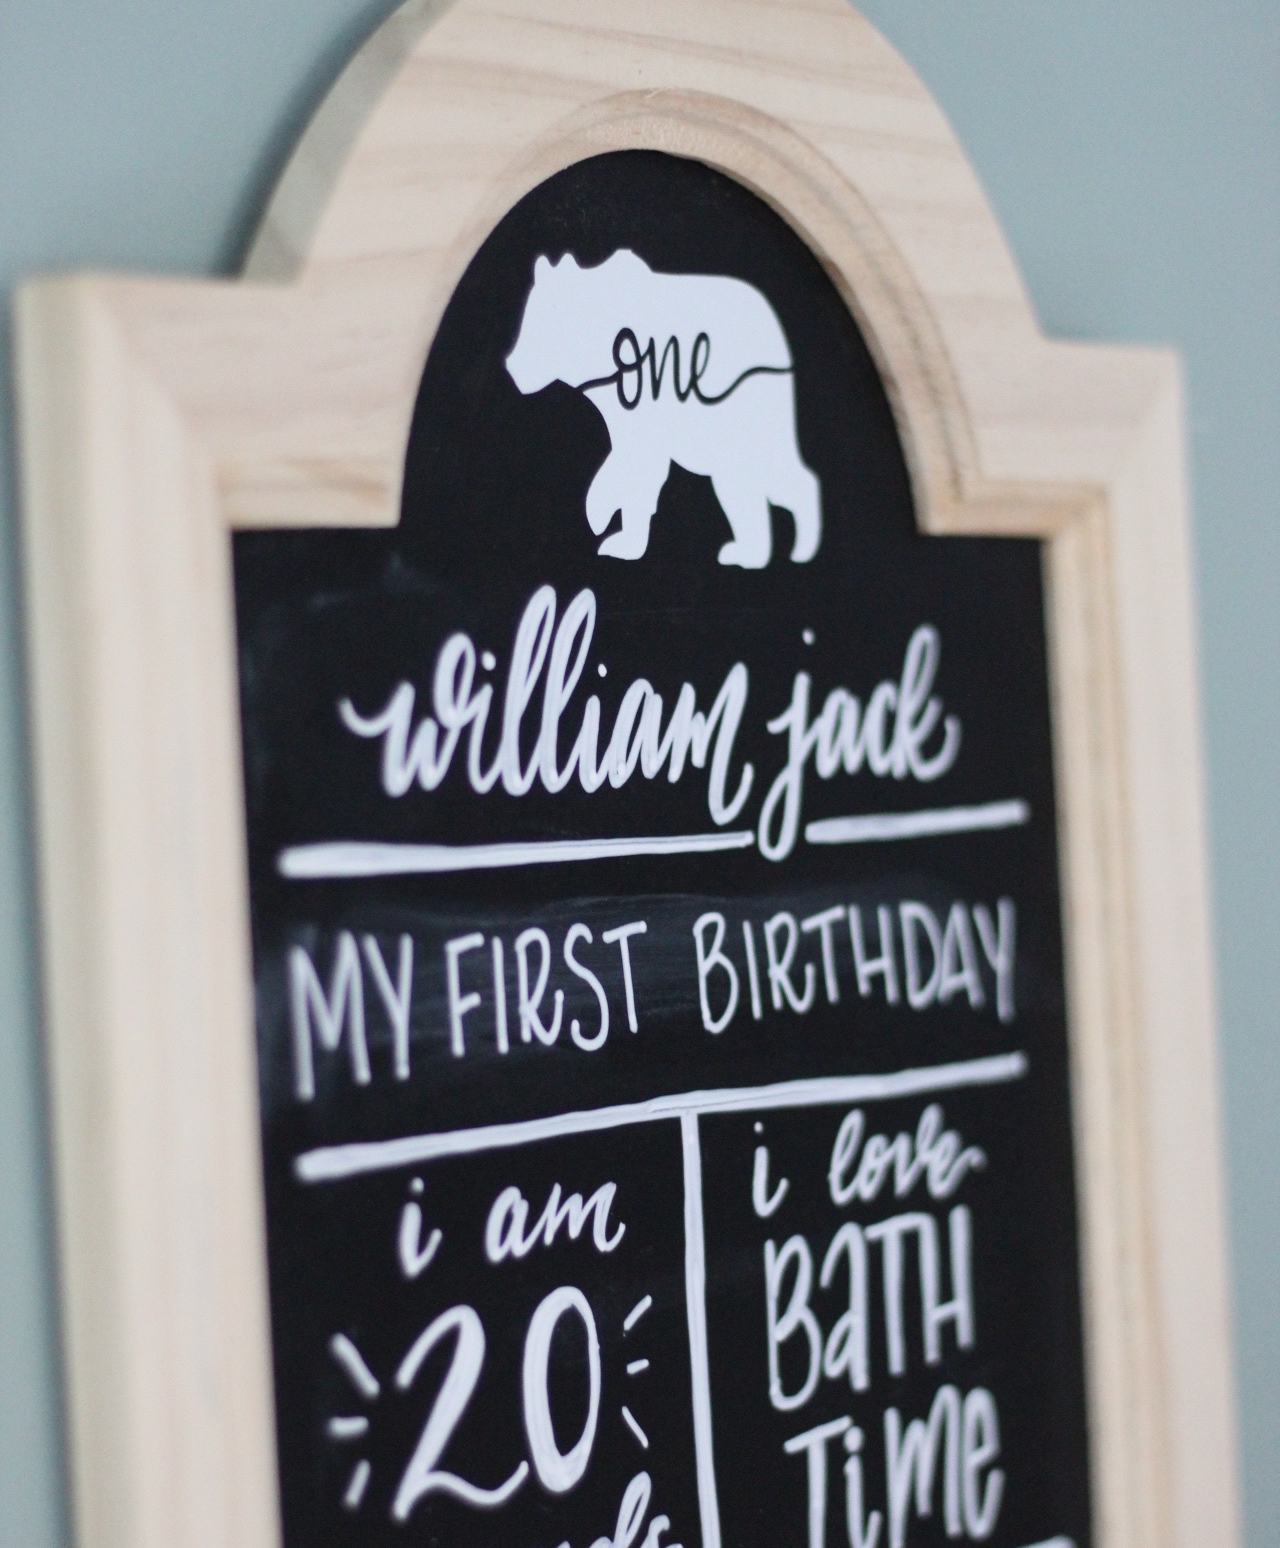 one
william jack
MY FIRST BIRTHDAY
i am
20
i love
BaTH
Time